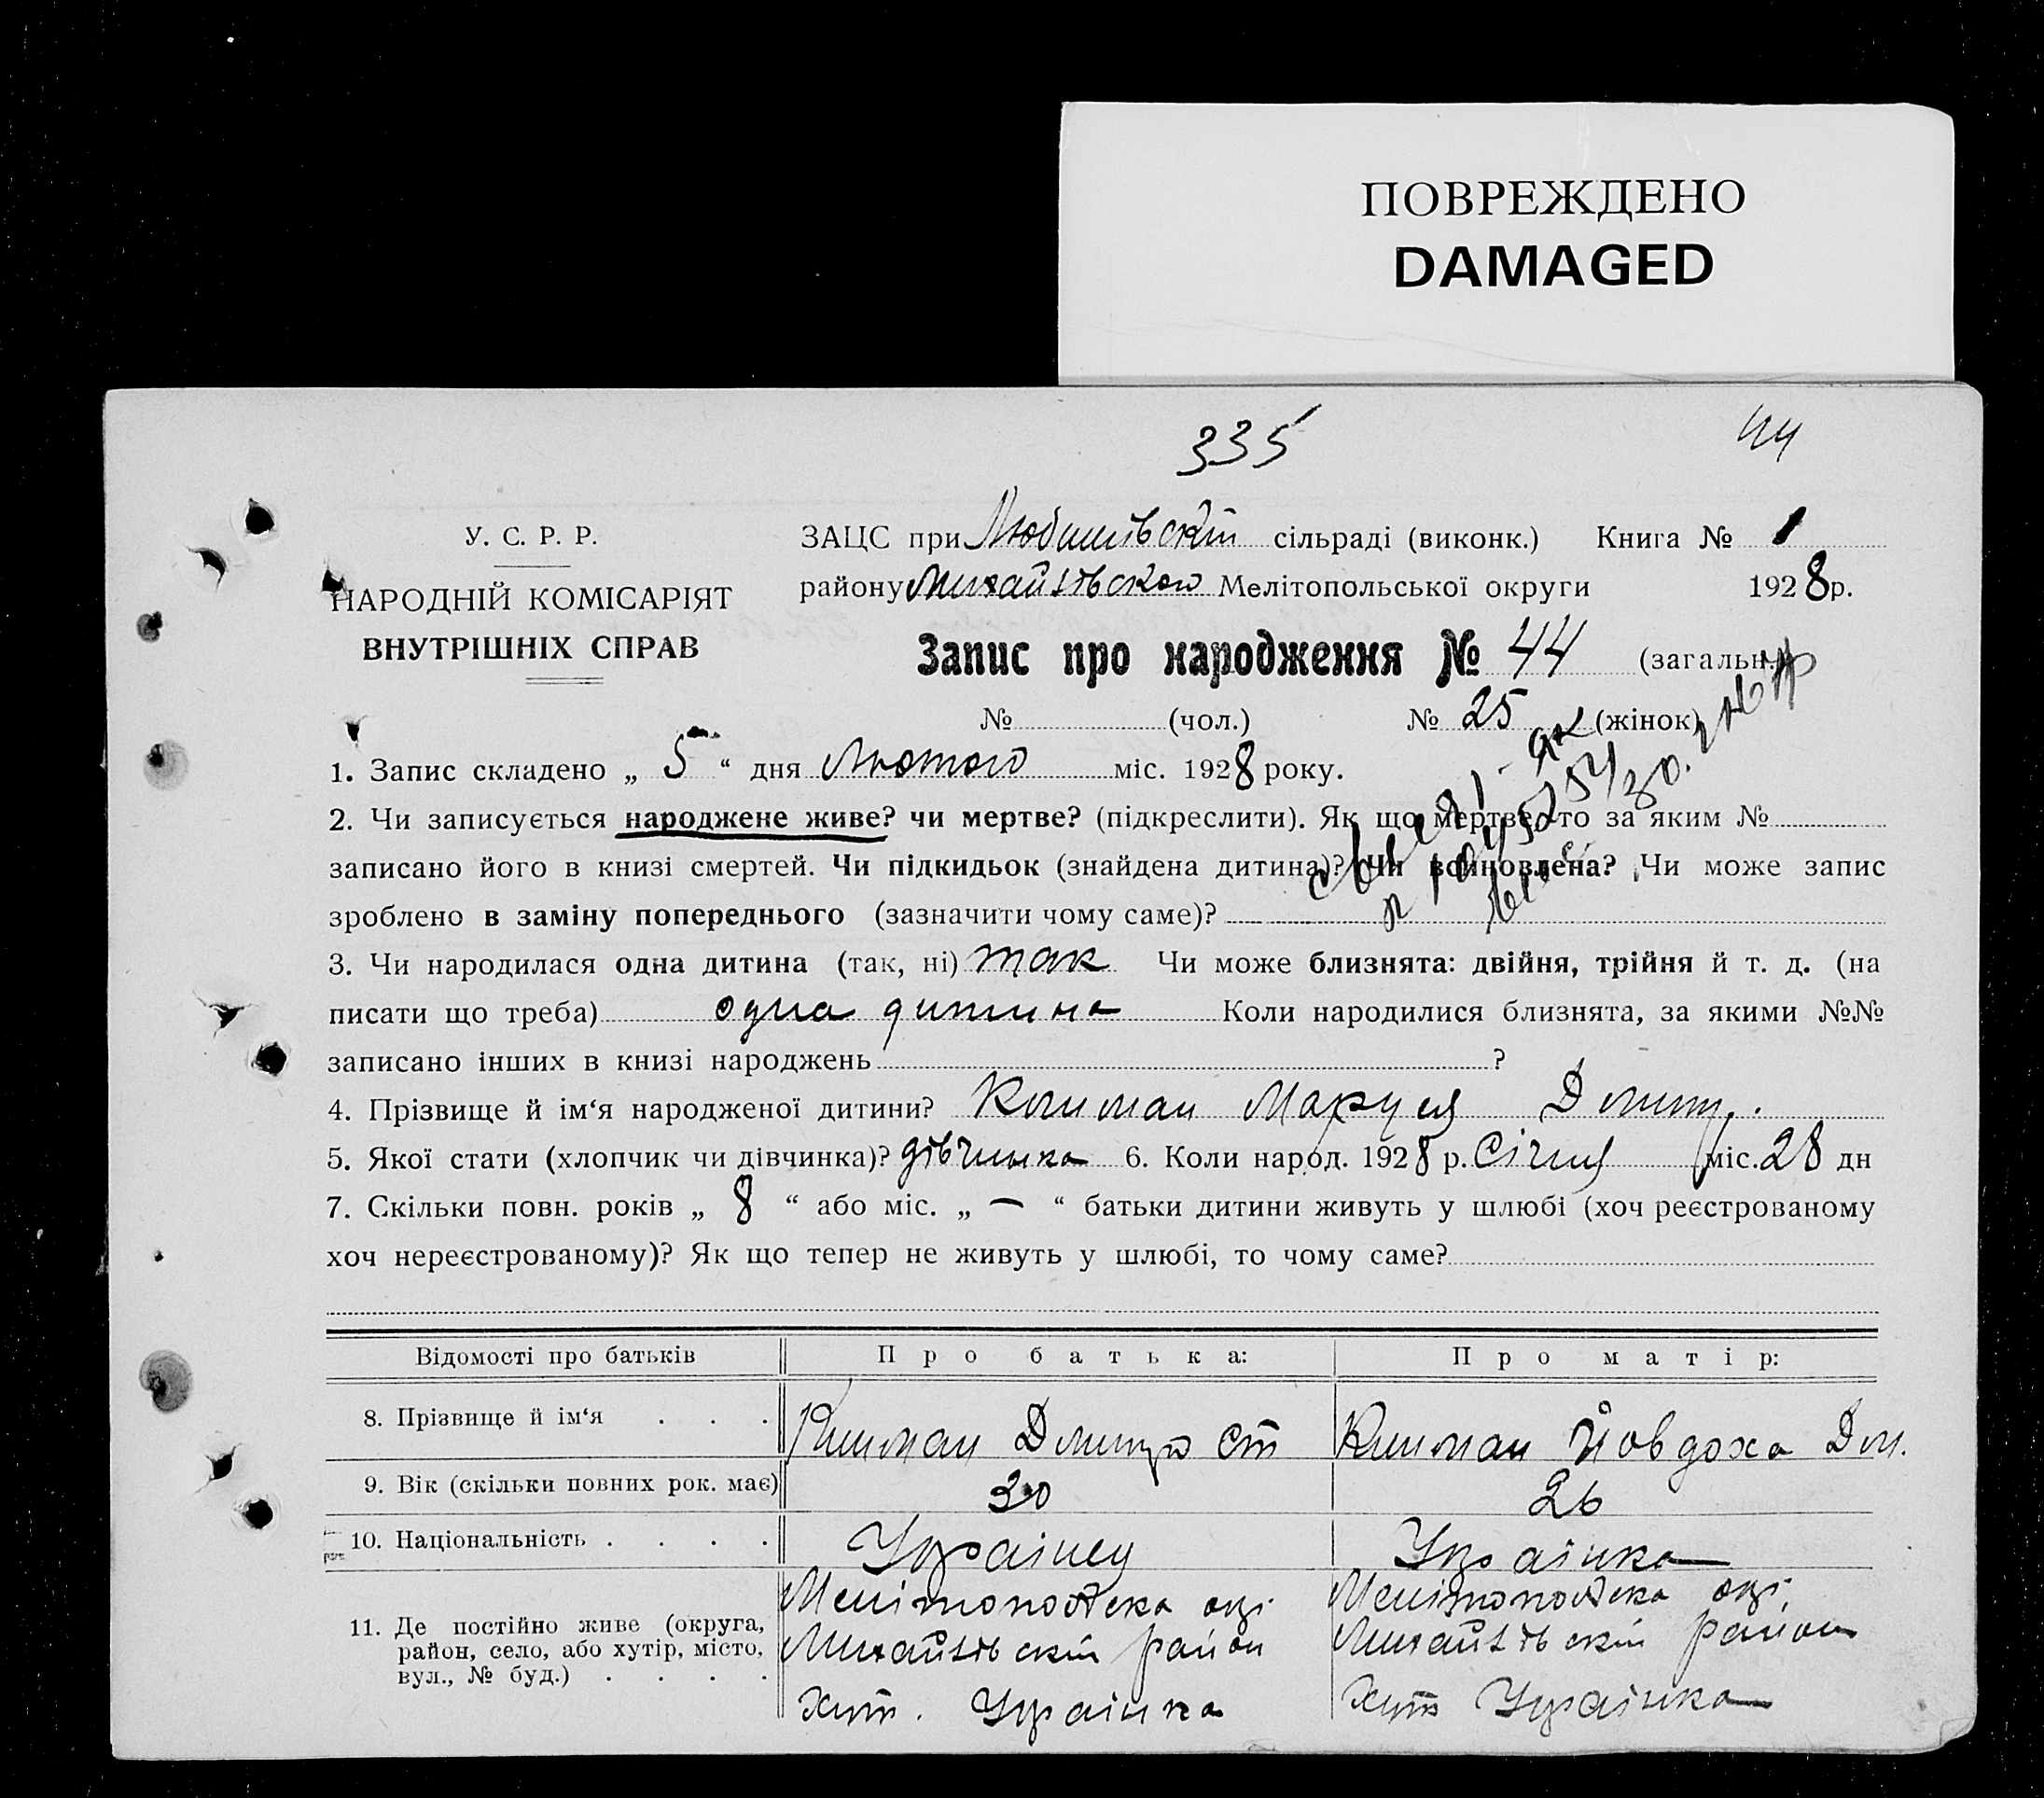 ПОВРЕЖДЕНО
DAMAGED
335
44
У. С. Р. Р.
НАРОДНІЙ КОМІСАРІЯТ
ВНУТРІШНІХ СПРАВ
ЗАЦС при сільраді (виконк.) Книга № 1
району Михайлівского Мелітопольської округи 1928 р.
Запис про народження № 44 (загальн.)
№ (чол.) № 25 (жінок)
1. Запис складено „ 5 “ дня Лютого міс. 1928 року.
2. Чи записується народжене живе? чи мертве? (підкреслити). Як що мертве, то за яким №
записано його в книзі смертей. Чи підкидьок (знайдена дитина)? Чи всиновлена? Чи може запис
зроблено в заміну попереднього (зазначити чому саме)?
3. Чи народилася одна дитина (так, ні) так Чи може близнята: двійня, трійня й т. д. (на
писати що треба) одна дитина Коли народилися близнята, за якими №№
записано інших в книзі народжень ?
4. Прізвище й ім‘я народженої дитини? Маруся
5. Якої стати (хлопчик чи дівчинка)? дівчинка 6. Коли народ. 1928 р. Січня міс. 28 дн
7. Скільки повн. років „ 8 “ або міс. „ — “ батьки дитини живуть у шлюбі (хоч реєстрованому
хоч нереєстрованому)? Як що тепер не живуть у шлюбі, то чому саме?
Відомості про батьків Про батька: Про матір:
8. Прізвище й ім‘я . . . Дмитро Ст Йовдоха Дм.
9. Вік (скільки повних рок. має) 30 26
10. Національність . . . . Українец Українка
11. Де постійно живе (округа, район, село, або хутір, місто, вул., № буд.) . . . .
Мелітопольска окр. Мелітопольска окр.
Михайлівский район Михайлівский район
Хут. Українка Хут Українка